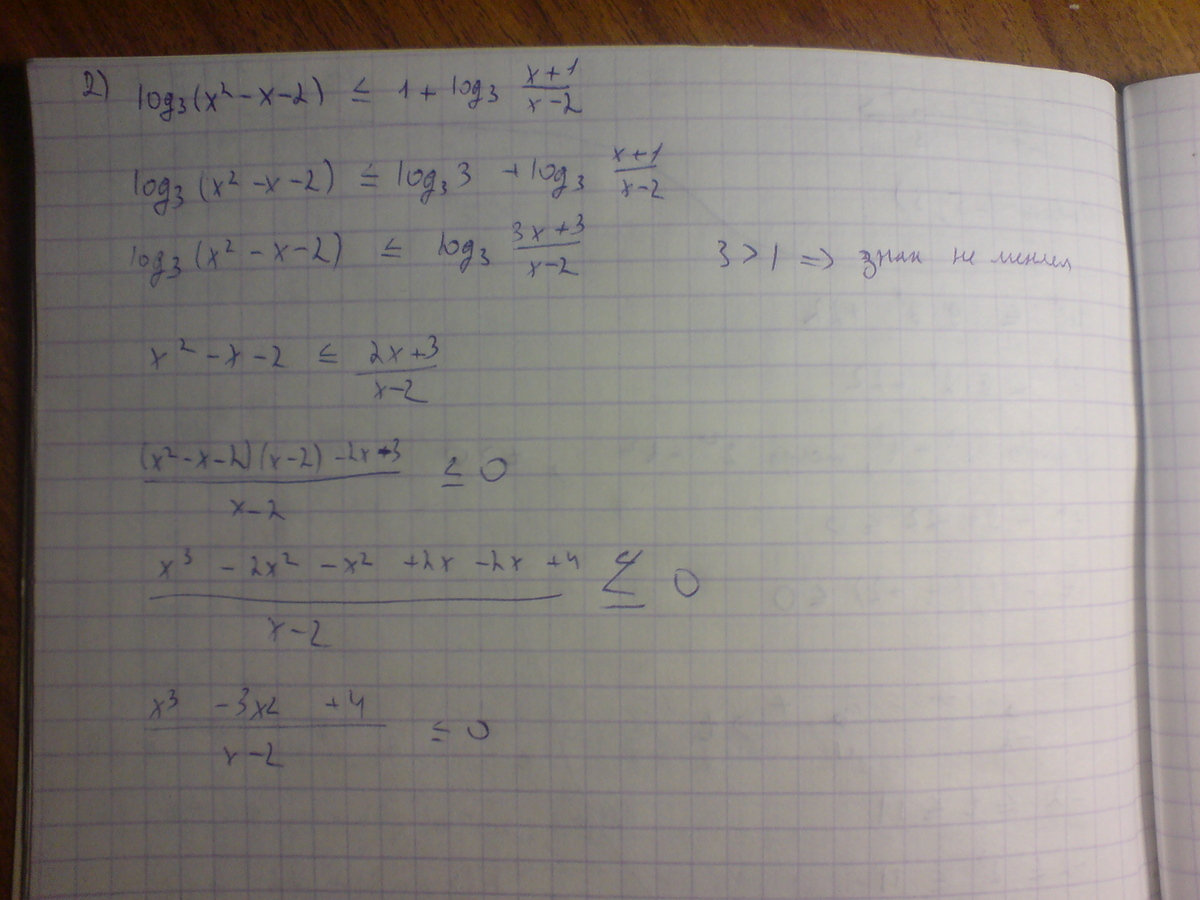 2) log₃(x² - x - 2) ≤ 1 + log₃ (x+1)/(x-2)
log₃(x² - x - 2) ≤ log₃3 + log₃ (x+1)/(x-2)
log₃(x² - x - 2) ≤ log₃ (3x+3)/(x-2) 3 > 1 => знак не менял
x² - x - 2 ≤ (2x+3)/(x-2)
((x² - x - 2)(x-2) - 2x - 3)/(x-2) ≤ 0
(x³ - 2x² - x² + 2x - 2x + 4)/(x-2) ≤ 0
(x³ - 3x2 + 4)/(x-2) ≤ 0